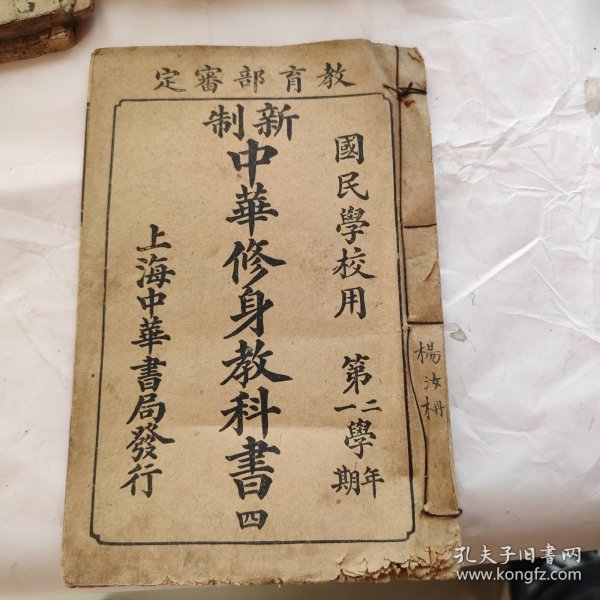 教育部審定
國民學校用 第二一學年期
新制
中華修身教科書 四
上海中華書局發行
楊汝枬
孔夫子旧书网
www.kongfz.com